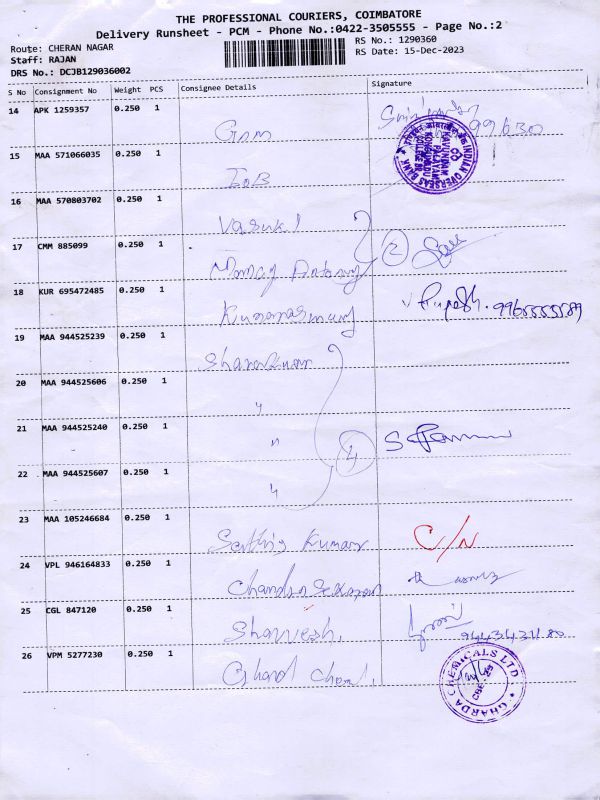 THE PROFESSIONAL COURIERS, COIMBATORE
Delivery Runsheet - PCM - Phone No.:0422-3505555 - Page No.:2
Route: CHERAN NAGAR
RS No.: 1290360
Staff: RAJAN
RS Date: 15-Dec-2023
DRS No.: DCJB129036002
S No Consignment No Weight PCS Consignee Details Signature
14 APK 1259357 0.250 1 99630
15 MAA 571066035 0.250 1 IOB
INDIAN OVERSEAS BANK
16 MAA 570803702 0.250 1 Vasuki
17 CMM 885099 0.250 1 Antony 2
18 KUR 695472485 0.250 1 Kumarasamy
19 MAA 944525239 0.250 1
20 MAA 944525606 0.250 1 "
21 MAA 944525240 0.250 1 " 4
22 MAA 944525607 0.250 1 "
23 MAA 105246684 0.250 1 Kumar C/N
24 VPL 946164833 0.250 1 Chandrasekaran
25 CGL 847120 0.250 1 Sharvesh.
26 VPM 5277230 0.250 1 Gharda Chem.
GHARDA CHEMICALS LTD